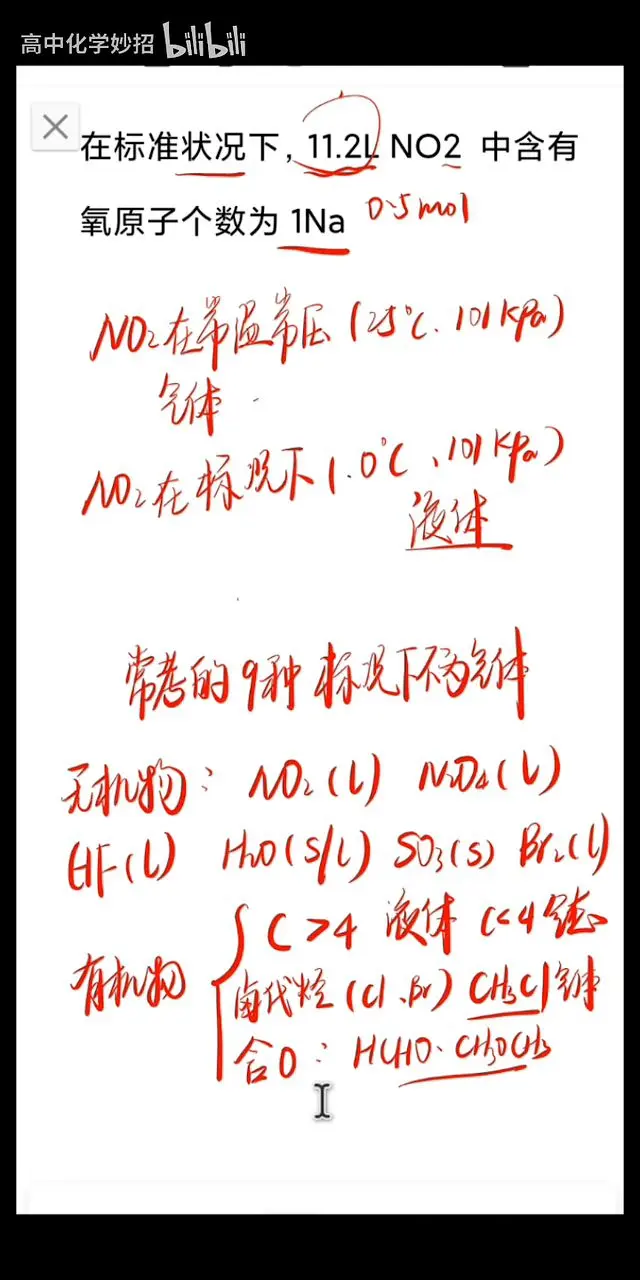 高中化学妙招 bilibili
在标准状况下，11.2L NO2 中含有
氧原子个数为 1Na 0.5mol
NO₂在常温常压(25℃.101kPa)
气体
NO₂在标况下(.0℃、101kPa)
液体
常考的9种标况下不为气体
无机物: NO₂(l) N₂O₄(l)
HF(l) H₂O(s/l) SO₃(s) Br₂(l)
有机物 C>4 液体 C<4气态
卤代烃(Cl、Br) CH₃Cl气体
含O: HCHO、CH₃OCH₃